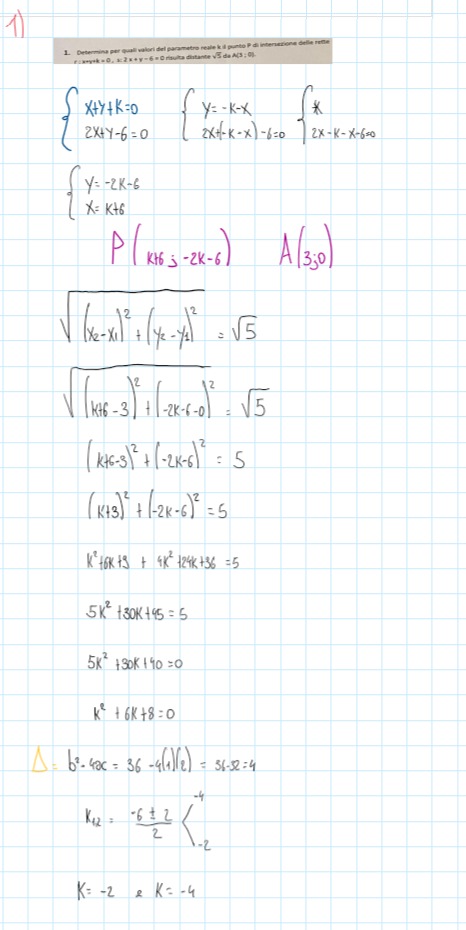 1)
1. Determina per quali valori del parametro reale k il punto P di intersezione delle rette
r : x+y+k = 0 , s: 2 x + y – 6 = 0 risulta distante √5 da A(3 ; 0).
{ x+y+k=0 { y=-k-x { x
2x+y-6=0 2x+(-k-x)-6=0 2x-k-x-6=0
{ y=-2k-6
x=k+6
P(k+6 ; -2k-6) A(3;0)
√((x2-x1)²+(y2-y1)²) = √5
√((k+6-3)²+(-2k-6-0)²) = √5
(k+6-3)²+(-2k-6)² = 5
(k+3)²+(-2k-6)² = 5
k²+6k+9 + 4k²+24k+36 = 5
5k²+30k+45 = 5
5k²+30k+40=0
k²+6k+8=0
Δ= b²-4ac = 36 -4(1)(2) = 36-32=4
k1,2 = -6±2/2 < -4
-2
k=-2 e k=-4